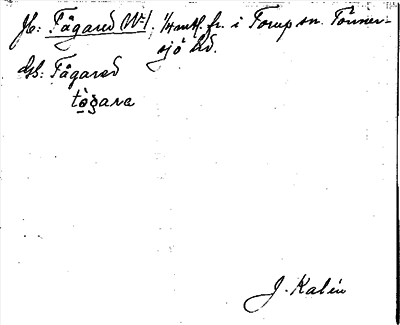 Jb: Fägared N:1, 1/4 mtl. fr. i Torup sn. Tönner-
sjö hd.
Us: Fägared
tògara
J. Kalén